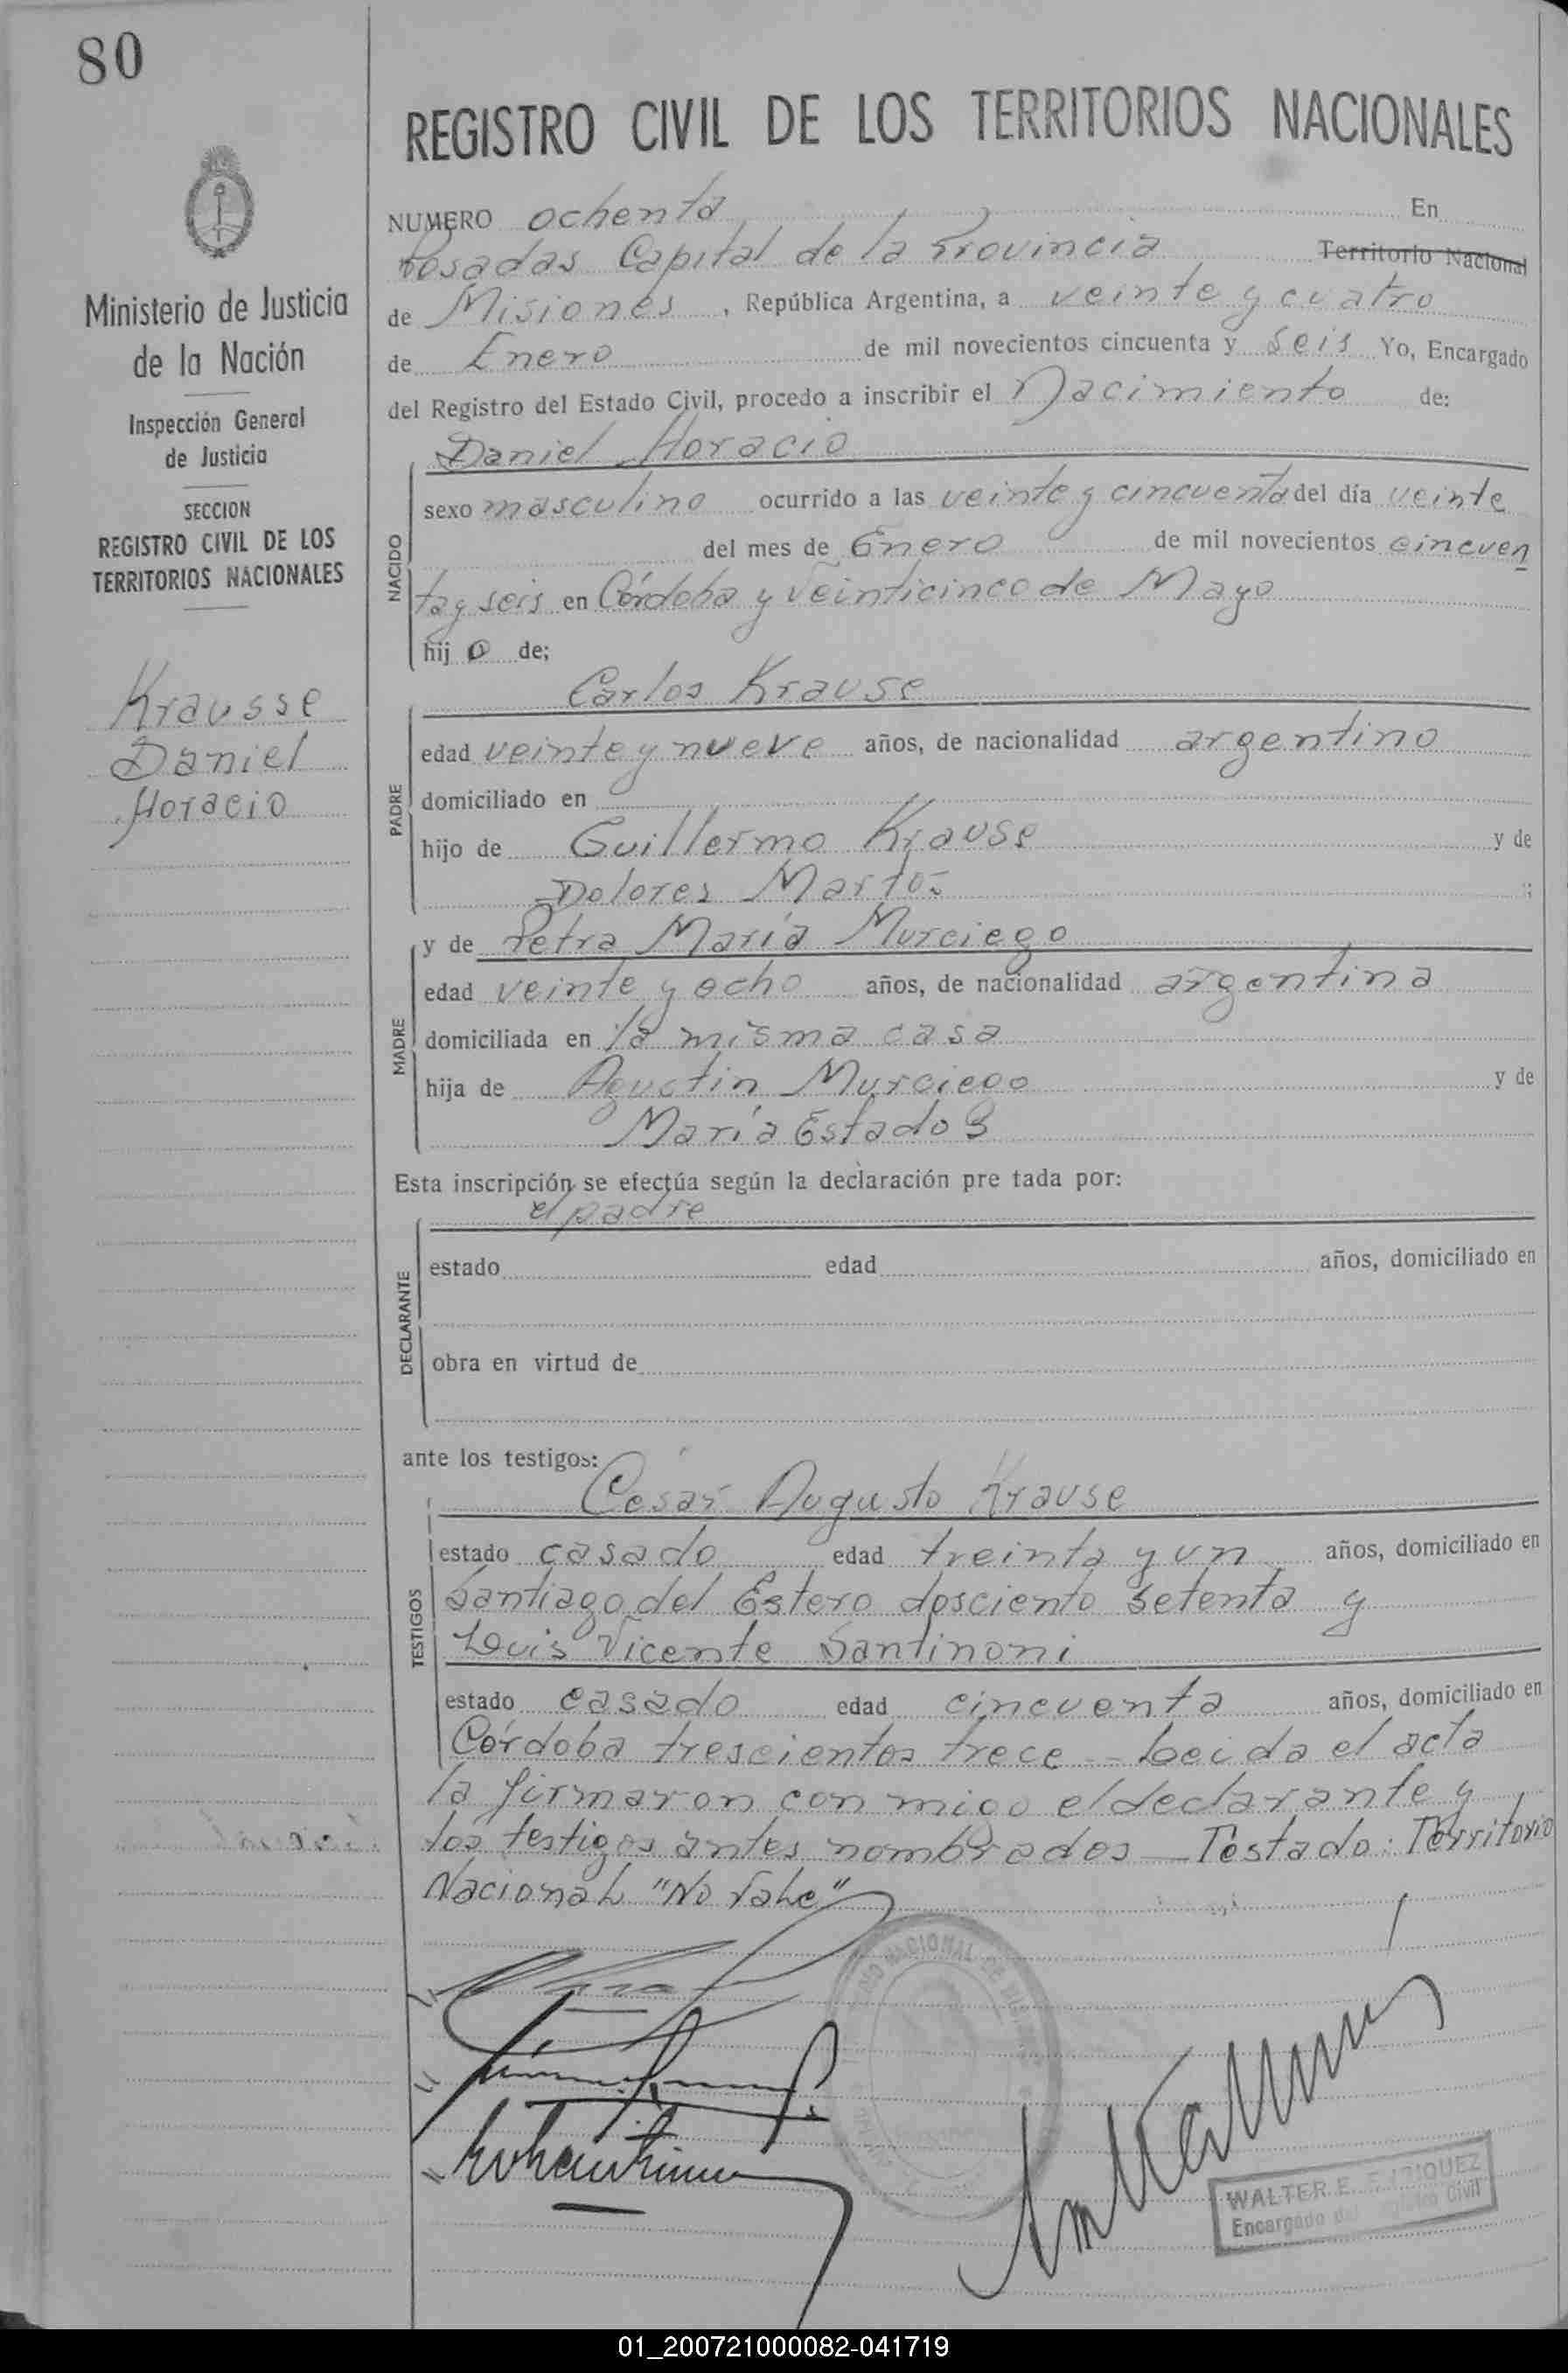 80
REGISTRO CIVIL DE LOS TERRITORIOS NACIONALES
Ministerio de Justicia
de la Nación
Inspección General
de Justicia
SECCION
REGISTRO CIVIL DE LOS
TERRITORIOS NACIONALES
Krausse
Daniel
Horacio
NUMERO ochenta En
Posadas Capital de la Provincia Territorio Nacional
de Misiones, República Argentina, a veinte y cuatro
de Enero de mil novecientos cincuenta y seis Yo, Encargado
del Registro del Estado Civil, procedo a inscribir el Nacimiento de:
NACIDO
Daniel Horacio
sexo masculino ocurrido a las veinte y cincuenta del día veinte
del mes de Enero de mil novecientos cincuen
ta y seis en Córdoba y Veinticinco de Mayo
hij o de;
PADRE
Carlos Krause
edad veinte y nueve años, de nacionalidad argentino
domiciliado en
hijo de Guillermo Krause y de
Dolores Martos
MADRE
y de Petra María Murciego
edad veinte y ocho años, de nacionalidad argentina
domiciliada en la misma casa
hija de Agustin Murciego y de
María Estado
Esta inscripción se efectúa según la declaración pre tada por:
DECLARANTE
el padre
estado edad años, domiciliado en
obra en virtud de
ante los testigos:
TESTIGOS
César Augusto Krause
estado casado edad treinta y un años, domiciliado en
Santiago del Estero dosciento setenta y
Luis Vicente Santinoni
estado casado edad cincuenta años, domiciliado en
Córdoba trescientos trece - Leida el acta
la firmaron con migo el declarante y
los testigos antes nombrados - Testado: Territorio
Nacional "No Vale"
WALTER E.
Encargado del Registro Civil
01_200721000082-041719